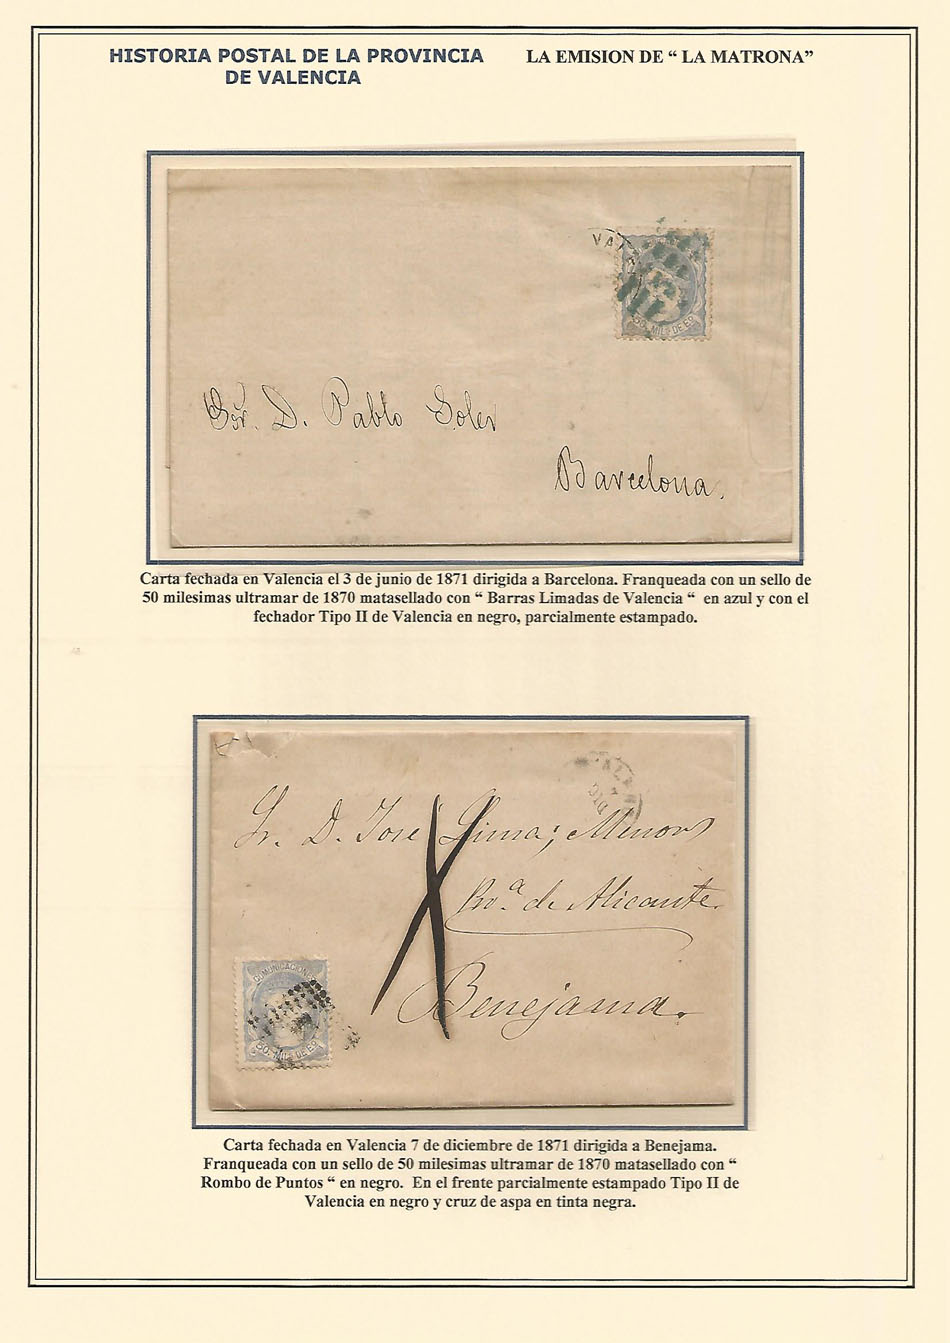 HISTORIA POSTAL DE LA PROVINCIA
DE VALENCIA
LA EMISION DE “ LA MATRONA”
VA
50. MILS DE EO
Sor. D. Pablo Soler
Barcelona.
Carta fechada en Valencia el 3 de junio de 1871 dirigida a Barcelona. Franqueada con un sello de
50 milesimas ultramar de 1870 matasellado con “ Barras Limadas de Valencia “ en azul y con el
fechador Tipo II de Valencia en negro, parcialmente estampado.
DIC
Sr. D. José Lima; Menor
Pro.ª de Alicante.
Benejama.
COMUNICACIONES
50. MILS DE EO
Carta fechada en Valencia 7 de diciembre de 1871 dirigida a Benejama.
Franqueada con un sello de 50 milesimas ultramar de 1870 matasellado con “
Rombo de Puntos “ en negro. En el frente parcialmente estampado Tipo II de
Valencia en negro y cruz de aspa en tinta negra.